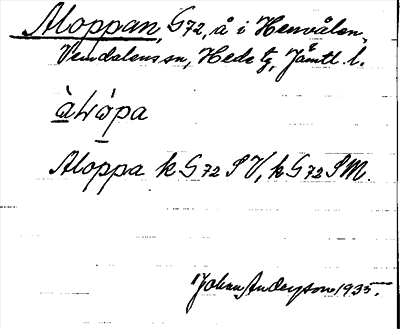 Aloppan, G72, å i Henvålen,
Vemdalens sn, Hede tg, Jämtl. l.
àlὼpa
Aloppa k G72 SV, k G72 SM.
Johan Anderson 1935.